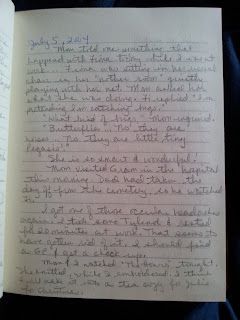 July 5, 2014
Mom told me something that
happened with Fiona today while I was at
work. Fiona was sitting on her usual
chair in her "other side" quietly
playing with her net. Mom asked her
what she was doing. Fi replied "I'm
pretending I'm catching bugs."
"What kind of bugs," Mom inquired.
"Butterflies... No they are
No they are little tiny
She is so smart & wonderful.
Mom visited Gram in the hospital
this morning. Dad had taken the
day off from the cemetery, so he watched
Fi.
I got one of those ocular headaches
again. I took some Tylenol & rested
for 20 minutes at work. That seems to
have gotten rid of it. I should find
a GP & get a check up.
Mom & I watched "
She knitted, while I embroidered. I think
I will make it into a tea cozy for Julie
for Christmas.